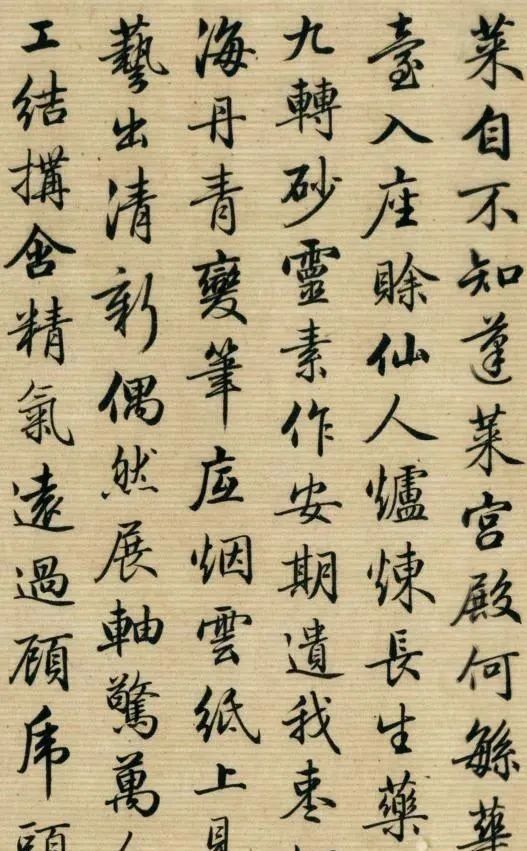 菜自不知蓬莱宮殿何緐華
臺入座賒仙人爐煉長生藥
九轉砂靈素作安期遺我棗
海丹青變筆底烟雲紙上
藝出清新偶然展軸驚萬
工結搆含精氣遠過顧虎頭